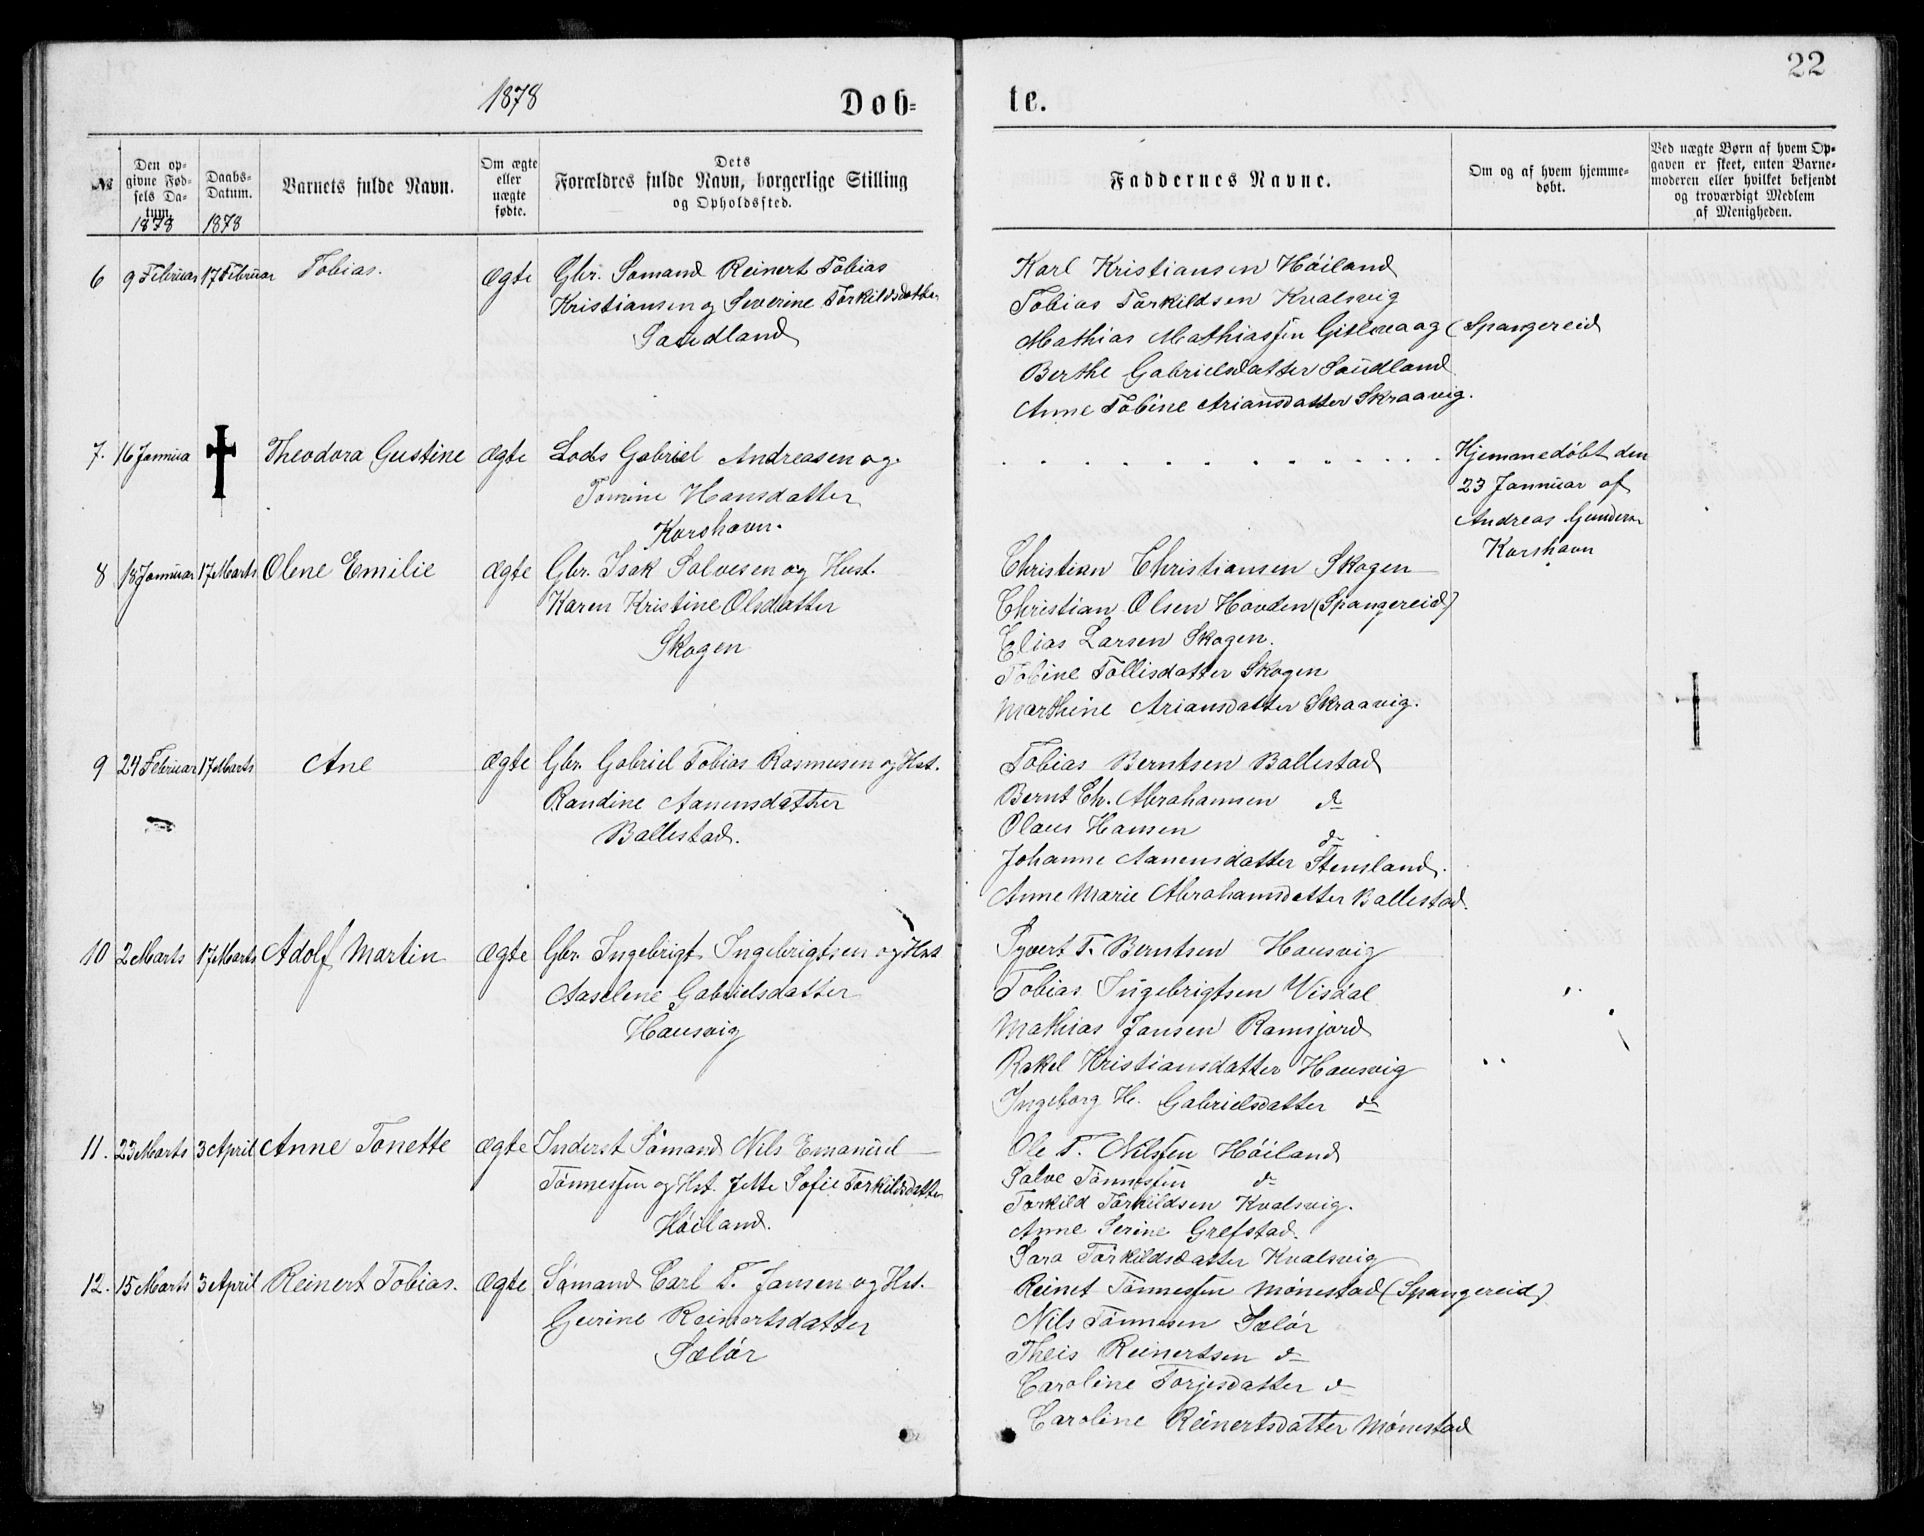 22
1878
Døb-
te.
№
Den op-
givne Fød-
sels Da-
tum.
1878
Daabs-
Datum.
1878
Barnets fulde Navn.
Om ægte
eller
uægte
fødte.
Dets
Forældres fulde Navn, borgerlige Stilling
og Opholdssted.
Faddernes Navne.
Om og af hvem hjemme-
døbt.
Ved uægte Børn af hvem Op-
gaven er skeet, enten Barne-
moderen eller hvilket bekjendt
og troværdigt Medlem
af Menigheden.
6 9 Februar 17 Februar Tobias. Ægte
Gbr. Sømand Reinert Tobias
Kristiansen og Severine Torkildsdatter
Saudland
Karl Kristiansen Höiland
Tobias Torkildsen Kvalsvig
Mathias Mathiassen (Spangereid
Berthe Gabrielsdatter Saudland
Anne Tobine Ariansdatter Skraavig.
7. 16 Januar † Theodora Gustine Ægte
Lods Gabriel Andreasen og
Tomine Hansdatter
Korshavn.
Hjemmedøbt den
23 Januar af
Andreas Gunders.
Korshavn
8 18 Januar 17 Marts Olene Emilie Ægte
Gbr. Isak Salvesen og Hust.
Karen Kristine Olsdatter
Skogen
Christian Christiansen Skogen
Christian Olsen Hovden (Spangereid)
Elias Larsen Skogen.
Tobine Tollisdatter Skogen
Marthine Ariansdatter Skraavig.
9 24 Februar 17 Marts Ane Ægte
Gbr. Gabriel Tobias Rasmusen og Hst.
Randine Aanensdatter
Ballestad.
Tobias Berntsen Ballestad
Bernt Ch. Abrahamsen do
Olaus Hansen do
Johanne Aanensdatter Stensland.
Anne Marie Abrahamsdatter Ballestad.
10 2 Marts 17 Marts Adolf Martin Ægte
Gbr. Ingebrigt Ingebrigtsen og Hst
Aaselene Gabrielsdatter
Hausvig
Syvert T. Berntsen Hausvig
Tobias Ingebrigtsen Visdal
Mathias Jansen Ramsjord
Rakel Kristiansdatter Hausvig
Ingeborg H. Gabrielsdatter do
11. 23 Marts 3 April Anne Tonette Ægte
Inderst Sömand Nils Emanuel
Tönnessen og Hst. Jette Sofie Torkildsdatter
Höiland.
Ole T. Nilssen Höiland
Salve Tönnessen do
Torkild Torkildsen Kvalsvig.
Anne Serine Grefstad.
Sara Torkildsdatter Kvalsvig
12. 15 Marts 3 April Reinert Tobias. Ægte
Sömand Carl T. Jansen og Hst.
Gurine Reinertsdatter
Selör
Reinet Tönnessen Mönestad (Spangereid)
Nils Tönnesen Selör
Theis Reinertsen do
Caroline Torjesdatter do
Caroline Reinertsdatter Mönestad